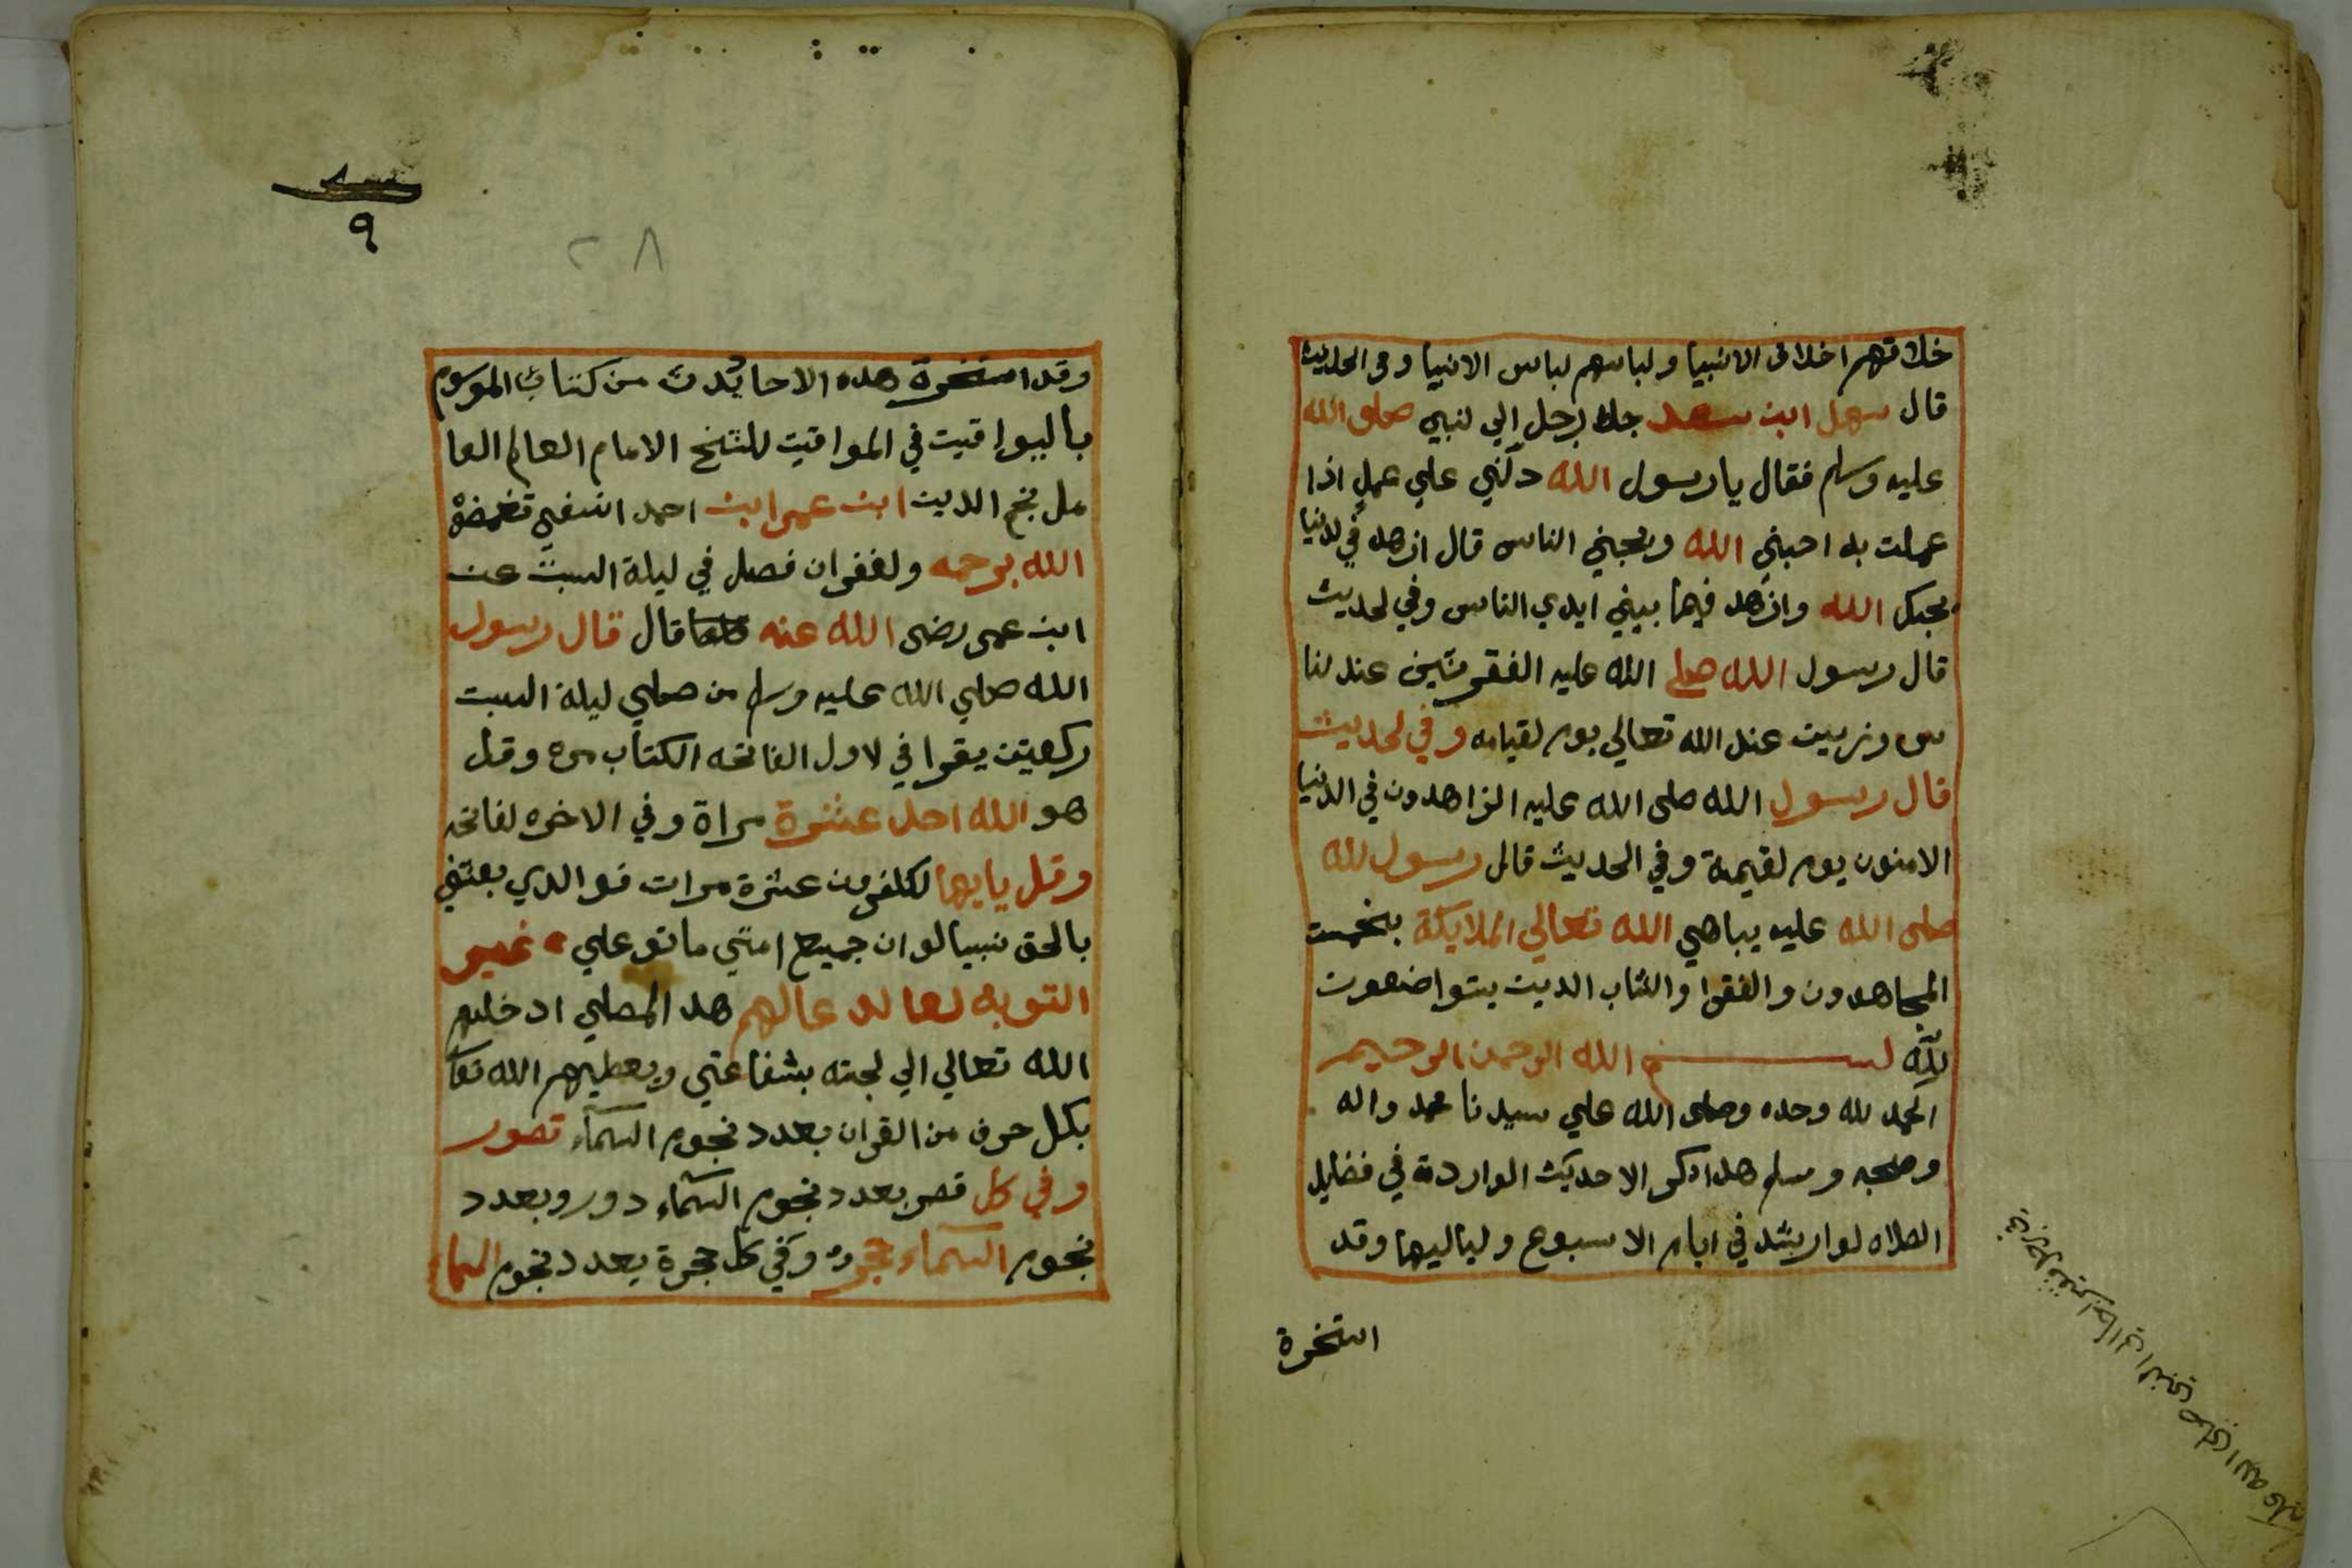 خلاقهم اخلاق الانبيا ولباسهم لباس الانبيا وفى الحديث
قال سهل ابن سعد جاء رجل إلي لنبي صلى الله
عليه وسلم فقال يا رسول الله دلّني علي عملٍ اذا
عملت به احبني الله ويحبني الناس قال ازهد في لدنيا
يحبك الله وازهد فيما بيني ايدي الناس وفي لحديث
قال رسول الله صلے الله عليه الفقر شين عند لنا
س وزيين عند الله تعالي يوم لقيامه وفي لحديث
قال رسول الله صلى الله عليه الزاهدون في الدنيا
الامنون يوم لقيمة وفي الحديث قال رسول لله
صلى الله عليه يباهي الله تعالي الملايكة بخمست
المجاهدون والفقرا والشاب الدين يتواضعون
للّه بسم الله الرحمن الرحيم
الحمد لله وحده وصلى الله علي سيدنا محمد واله
وصحبه وسلم هدا ذكر الاحديث الواردة في فضايل
الصلاه لوارشد في ايام الاسبوع ولياليها وقد
استخرة
وقد استخرة هده الاحاديث من كتاب الموسوم
باليواقيت في المواقيت للشيخ الامام العالم العا
مل نجم الدين ابن عمر ابن احمد النسفي تغمضهٌ
الله برحمه ولغفران فصل في ليلة السبت عن
ابن عمر رضى الله عنه قال قال رسول
الله صلي الله عليه وسلم من صلي ليلة السبت
ركعتين يقرا في لاول الفاتحه الكتاب مره وقل
هو الله احد عشرة مراة وفي الاخره لفاتحه
وقل يايها لكفرون عشرة مرات فو الدي بعثني
بالحق نبيا لو ان جميع امتي ماتو علي غير
التوبة لعالم عالهم هد المصلي ادخلهم
الله تعالي الي لجنه بشفاعتي ويعطيهم الله تعا
بكل حرف من القران بعدد نجوم السماء قصور
وفي كل قصر بعدد نجوم السماء دور وبعدد
نجوم السماء حجره وفي كل حجرة بعدد نجوم السماء
٩
٢٨